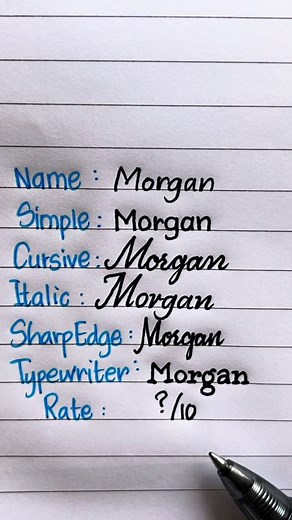 Name : Morgan
Simple : Morgan
Cursive : Morgan
Italic : Morgan
SharpEdge : Morgan
Typewriter : Morgan
Rate : ?/10